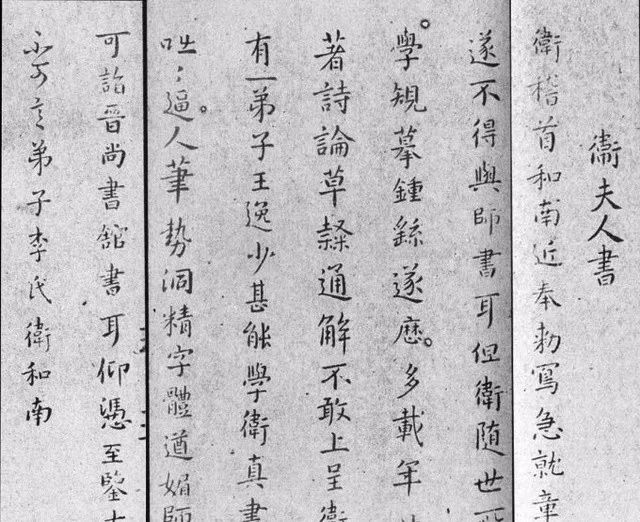 衛夫人書
衛稽首和南近奉勅寫急就章
遂不得與師書耳但衛隨世所
學規摹鍾繇遂歷多載年
著詩論草隸通解不敢上呈衛
有一弟子王逸少甚能學衛真書
咄〻逼人筆勢洞精字體遒媚師
可詣晉尚書館書耳仰憑至鑒大
不可言弟子李氏衛和南